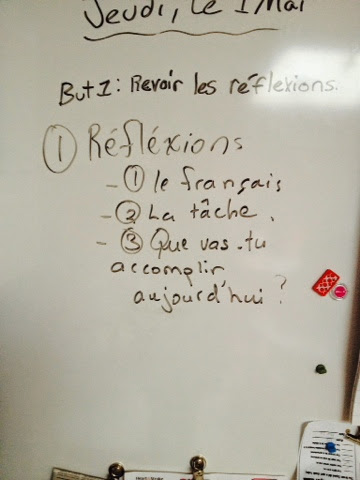 Jeudi, le 1 Mai
But 1: Revoir les réflexions.
① Réfléxions
- ① le français
- ② La tâche.
- ③ Que vas-tu
accomplir
aujourd'hui ?